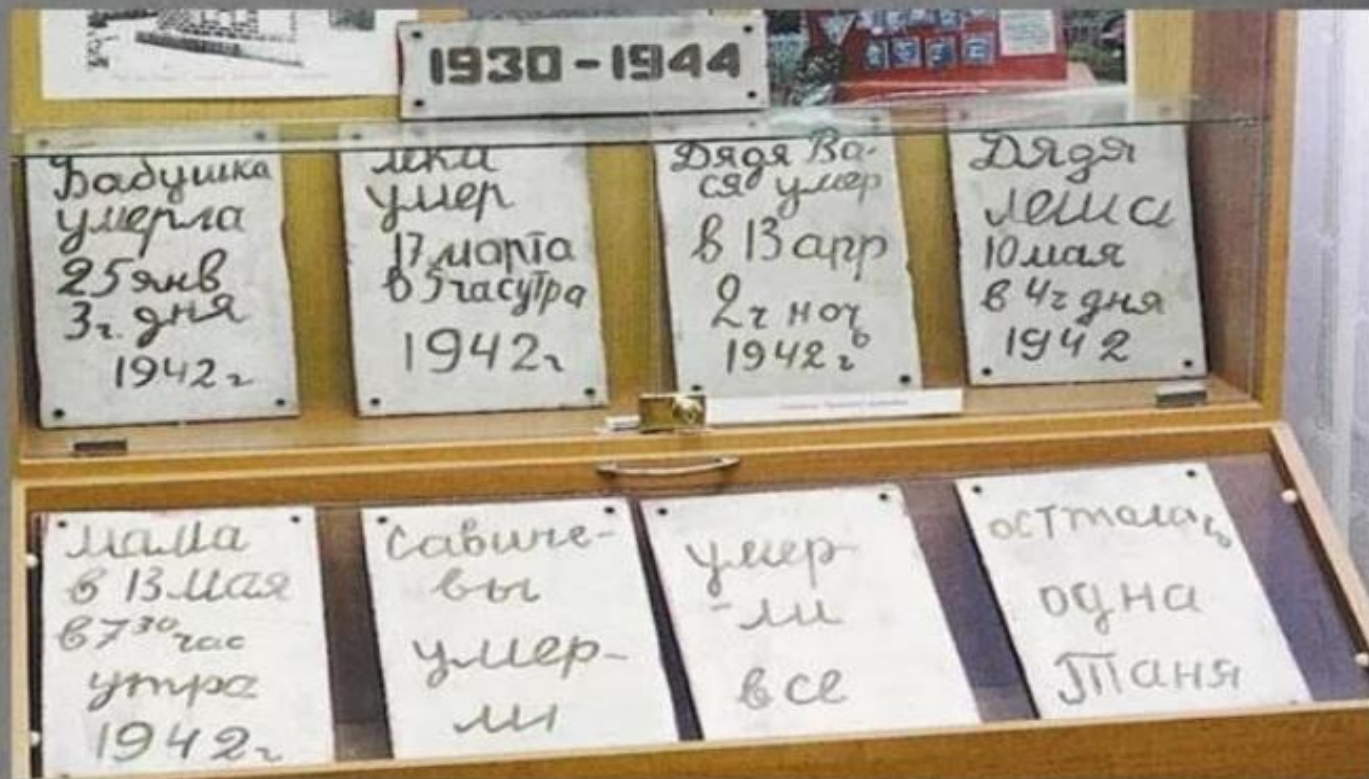 1930-1944
Бабушка
умерла
25 янв
3ч. дня
1942г
Лека
умер
17 марта
в 5 час утра
1942г
Дядя Ва-
ся умер
в 13 апр
2ч ночь
1942г
Дядя
Леша
10 мая
в 4ч дня
1942
Мама
в 13 мая
в 7³⁰ час
утра
1942г
Савиче-
вы
умер-
ли
умер-
-ли
все
остталась
одна
Таня